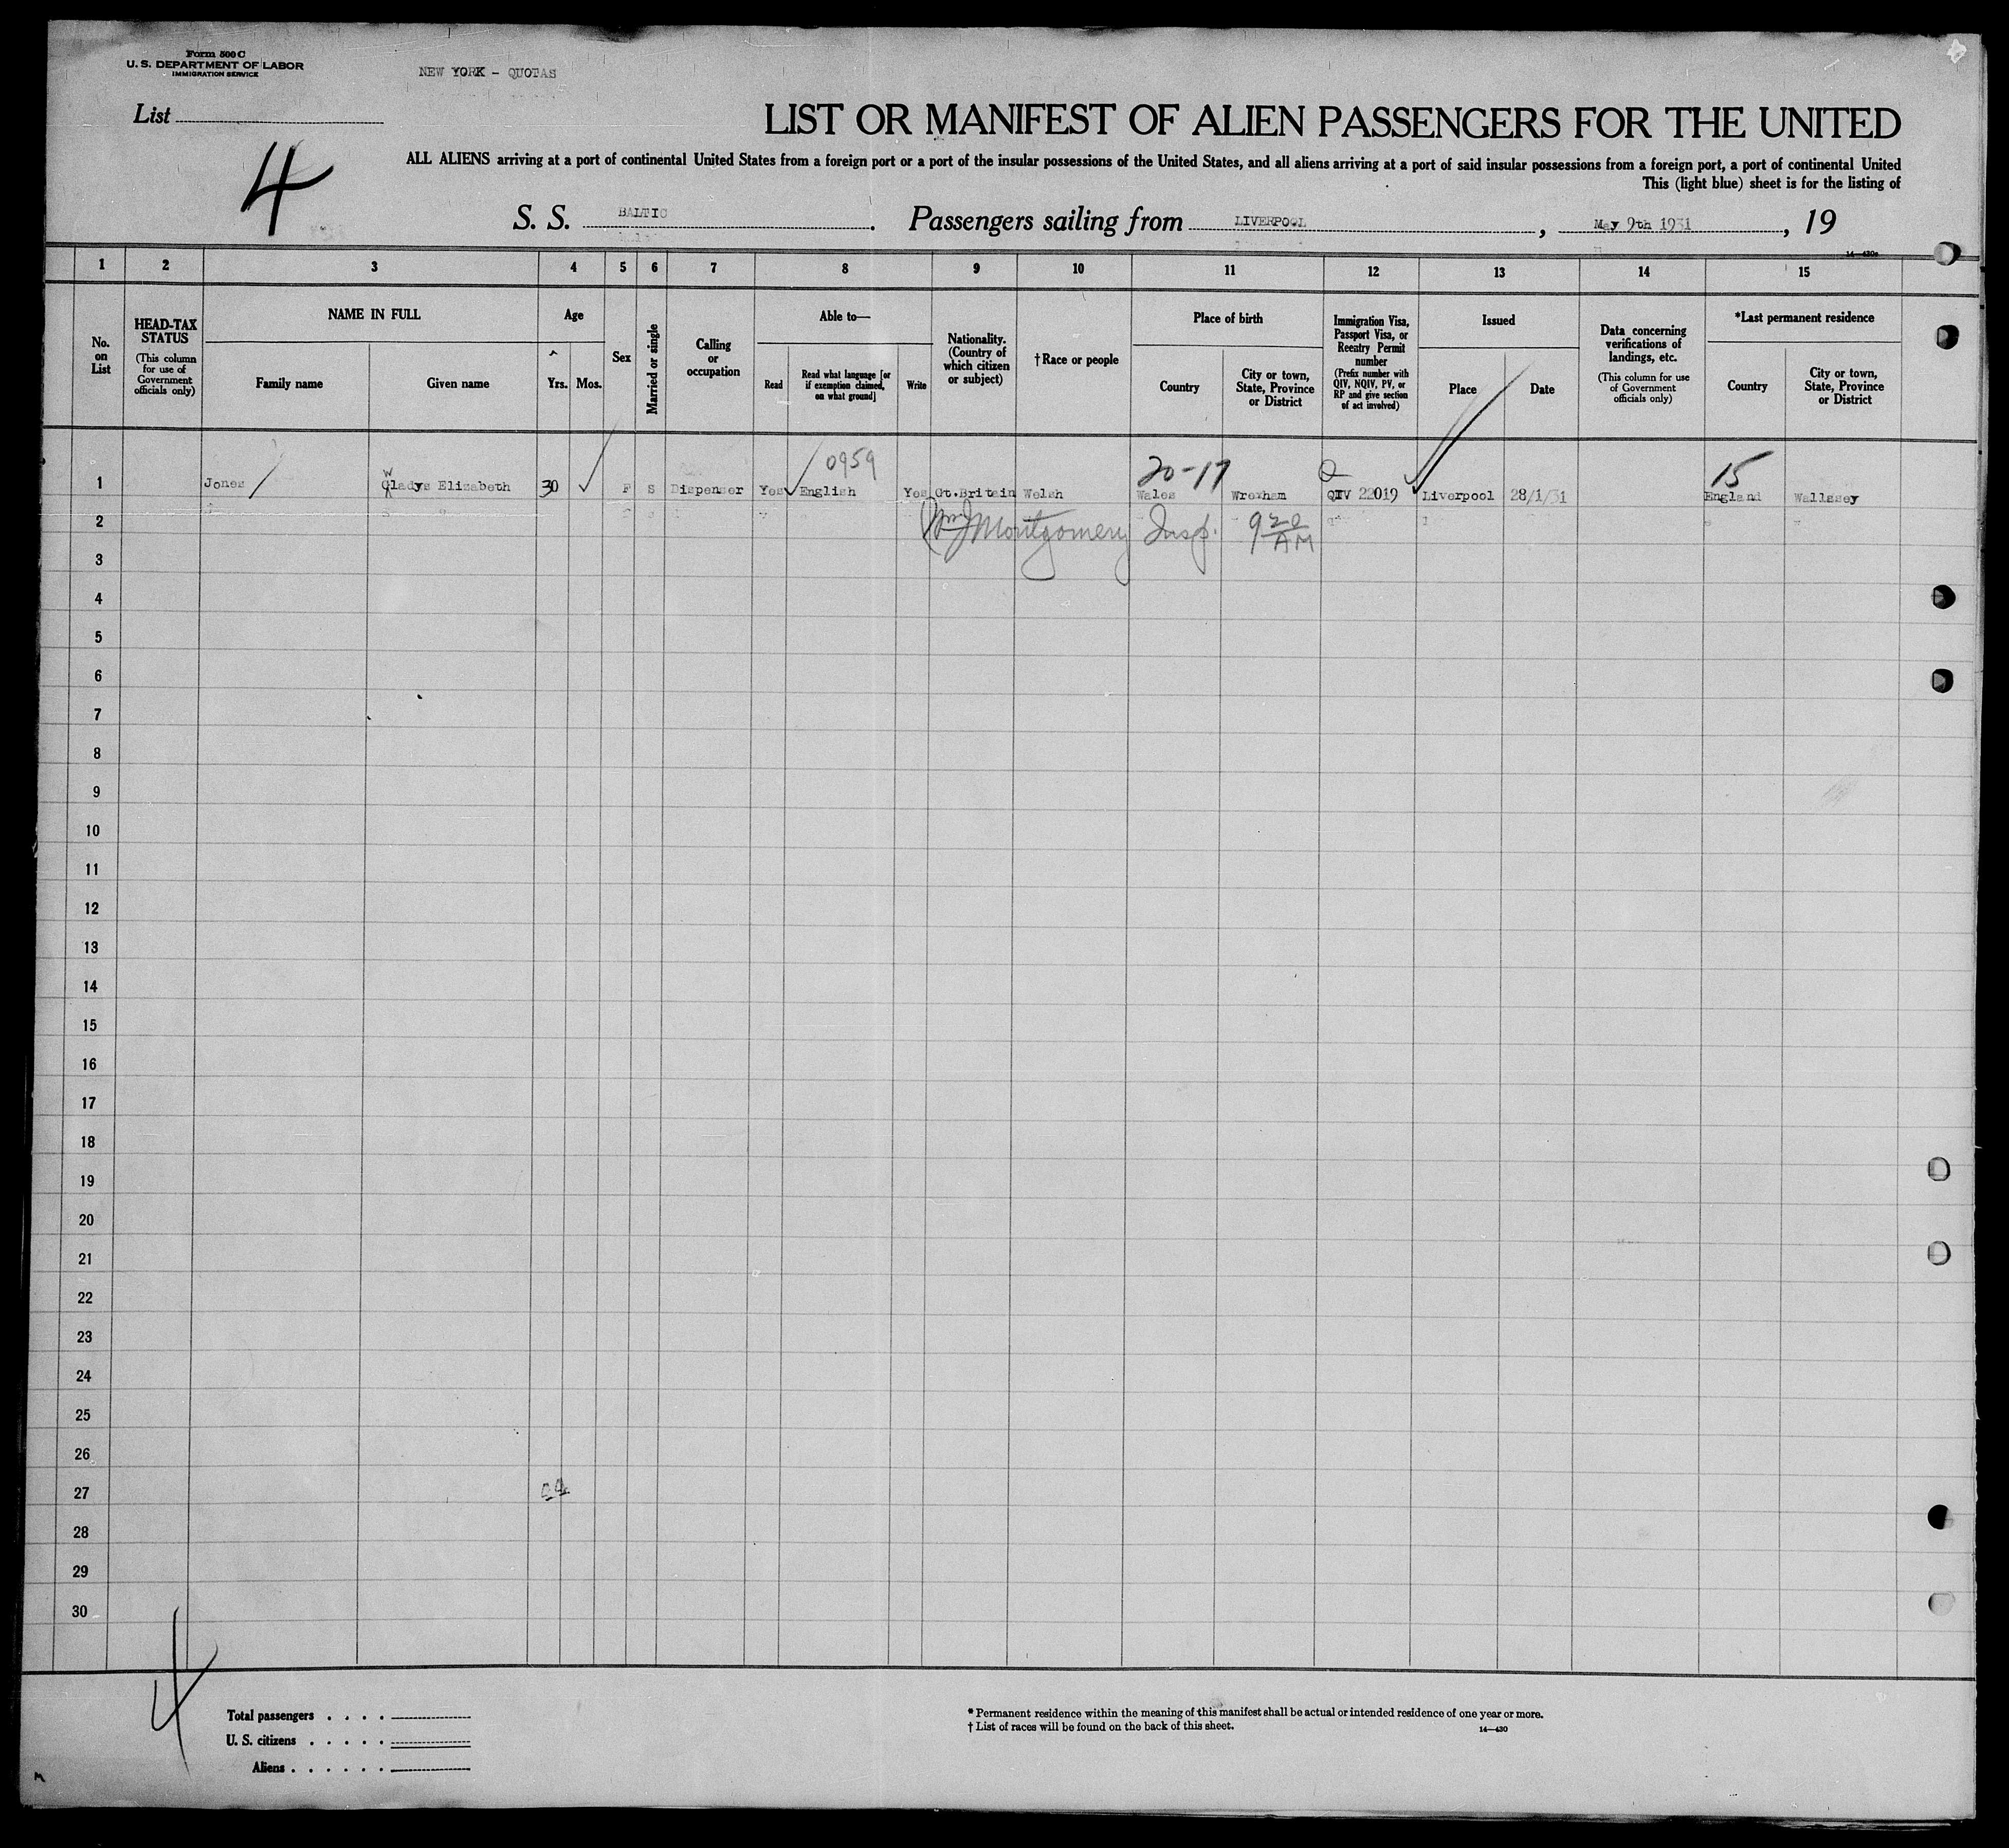 Form 500 C
U. S. DEPARTMENT OF LABOR
IMMIGRATION SERVICE
NEW YORK - QUOTAS
List
4
LIST OR MANIFEST OF ALIEN PASSENGERS FOR THE UNITED
ALL ALIENS arriving at a port of continental United States from a foreign port or a port of the insular possessions of the United States, and all aliens arriving at a port of said insular possessions from a foreign port, a port of continental United
This (light blue) sheet is for the listing of
S. S. BALTIC . Passengers sailing from LIVERPOOL , May 9th 1931 , 19
14—430a
1 2 3 4 5 6 7 8 9 10 11 12 13 14 15
No. on List
HEAD-TAX STATUS (This column for use of Government officials only)
NAME IN FULL
Family name
Given name
Age
Yrs. Mos.
Sex
Married or single
Calling or occupation
Able to—
Read
Read what language [or if exemption claimed, on what ground]
Write
Nationality. (Country of which citizen or subject)
†Race or people
Place of birth
Country
City or town, State, Province or District
Immigration Visa, Passport Visa, or Reentry Permit number (Prefix number with QIV, NQIV, PV, or RP and give section of act involved)
Issued
Place
Date
Data concerning verifications of landings, etc. (This column for use of Government officials only)
*Last permanent residence
Country
City or town, State, Province or District
0959
20-17
Q
15
W
1 Jones Gladys Elizabeth 30 F S Dispenser Yes English Yes Gt.Britain Welsh Wales Wrexham QIV 22019 Liverpool 28/1/31 England Wallasey
2 Montgomery Insp. 9 20 AM
3
4
5
6
7
8
9
10
11
12
13
14
15
16
17
18
19
20
21
22
23
24
25
26
27
28
29
30
4
Total passengers . . . .
U. S. citizens . . . . .
Aliens . . . . . .
* Permanent residence within the meaning of this manifest shall be actual or intended residence of one year or more.
† List of races will be found on the back of this sheet.
14—430